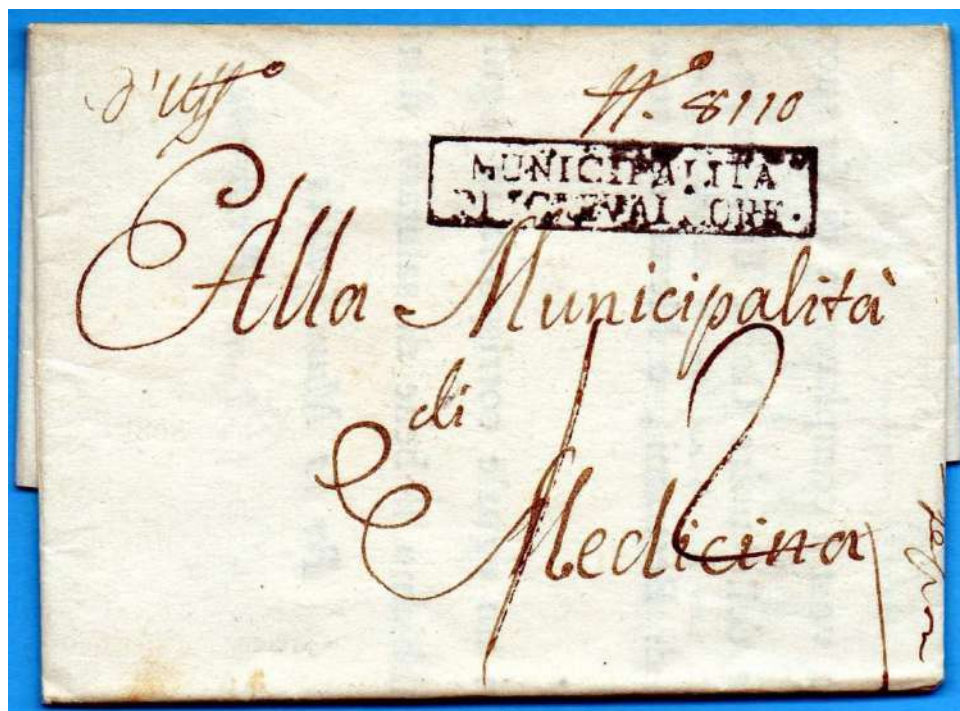 d'Uff°
N.° 8110
MUNICIPALITA
DI CREVALCORE.
Alla Municipalità
di
Medicina
12